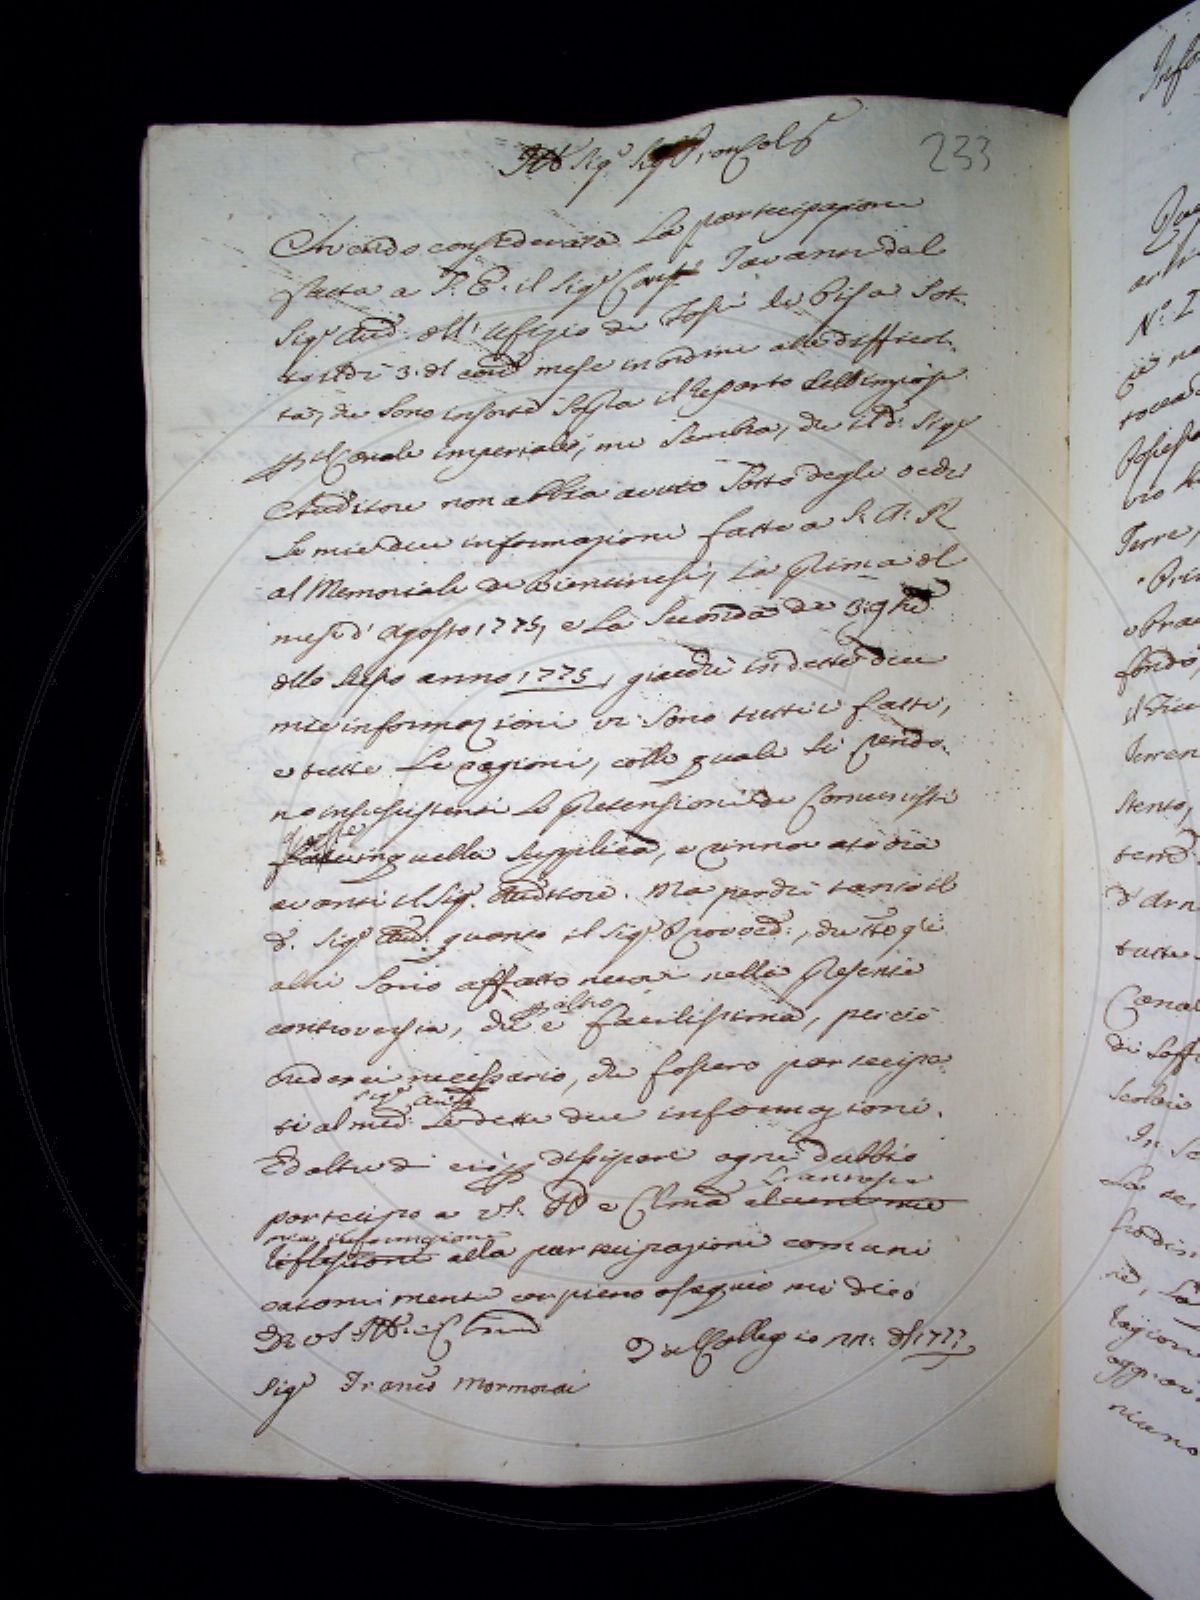 233
Avendo considerata La partecipazione
fatta a V. E. il Sig.e Tavanti dal
Sig.e Aud. dell' Ufizio de Fossi di Pisa sot-
to il dì 3. del mese in ordine alle difficol-
tà, che sono insorte sopra il reparto dell' imposi
p il Canale imperiale, mi sembra, che il d. Sig.e
Auditore non abbia avuto sotto degli occhi
Le mie due informazioni fatte a S. A. R.
al Memoriale de Bientinesi, La prima del
mese d' Agosto 1775, e La seconda de 3. 9bre
dello stesso anno 1775, giacchè in dette due
mie informazioni vi sono tutti i fatti,
e tutte Le ragioni, colle quali si rendo-
no insussistenti Le pretensioni de Comunisti
in quella supplica, e rinnovate da
avanti il Sig. Auditore. Ma perchè tanto il
d. Sig.e Aud. quanto il Sig.e Provved.,
altri sono affatto nuovi nella presente
controversia, che p altro è facilissima, perciò
crederei necessario, che fossero partecipa
ti al med. Sig.e Aud. Le dette due informazioni.
Ed oltre di ciò p dissipare ogni dubbio
partecipo a VS. Ill e Clma La annessa
mia informazione
riflessioni alla partecipazione comuni
catami mentre con pieno ossequio mi dico
Di VS. Ill. e Clma
Dal Collegio
Sig.e Franco Mormorai